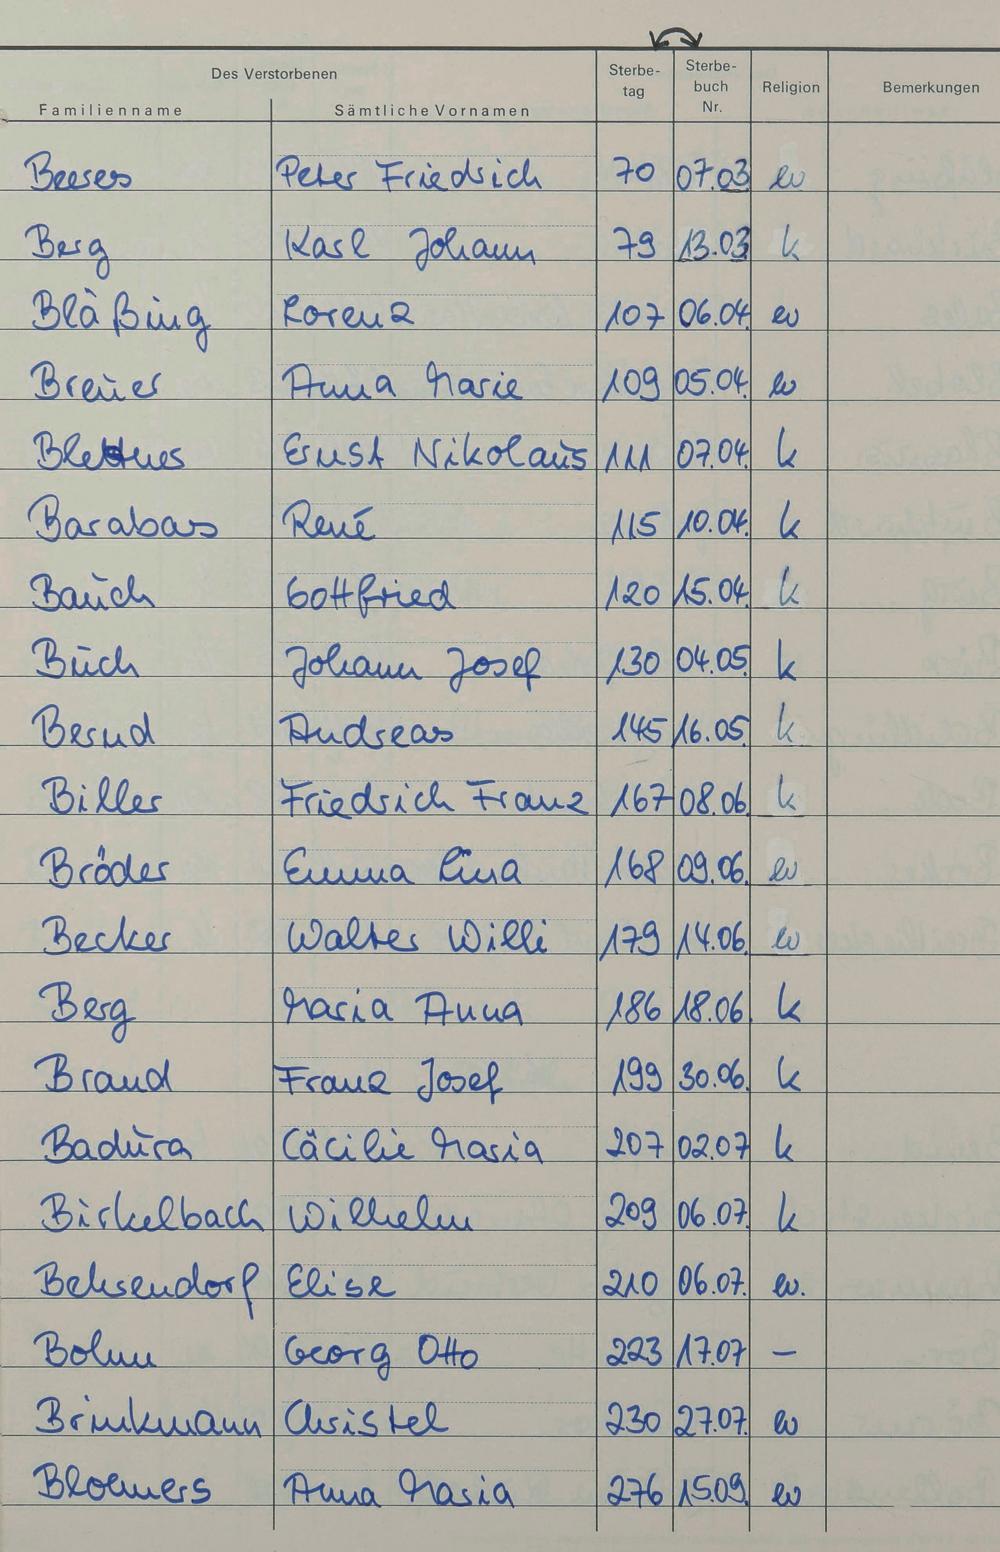 Des Verstorbenen
Familienname Sämtliche Vornamen Sterbe-tag Sterbe-buch Nr. Religion Bemerkungen
Beeres Peter Friedrich 70 07.03 ev
Berg Karl Johann 79 13.03 k
Bläßing Lorenz 107 06.04. ev
Breuer Anna Marie 109 05.04. ev
Blettner Ernst Nikolaus 111 07.04. k
Barabas René 115 10.04. k
Bauch Gottfried 120 15.04. k
Buch Johann Josef 130 04.05. k
Bernd Andreas 145 16.05. k
Biller Friedrich Franz 167 08.06. k
Bröder Emma Lina 168 09.06. ev
Becker Walter Willi 179 14.06. ev
Berg Maria Anna 186 18.06. k
Brand Franz Josef 199 30.06. k
Badura Cäcilie Maria 207 02.07 k
Birkelbach Wilhelm 209 06.07. k
Behsendorf Elise 210 06.07. ev.
Bohm Georg Otto 223 17.07 —
Brinkmann Christel 230 27.07. ev
Bloemers Anna Maria 276 15.09. ev